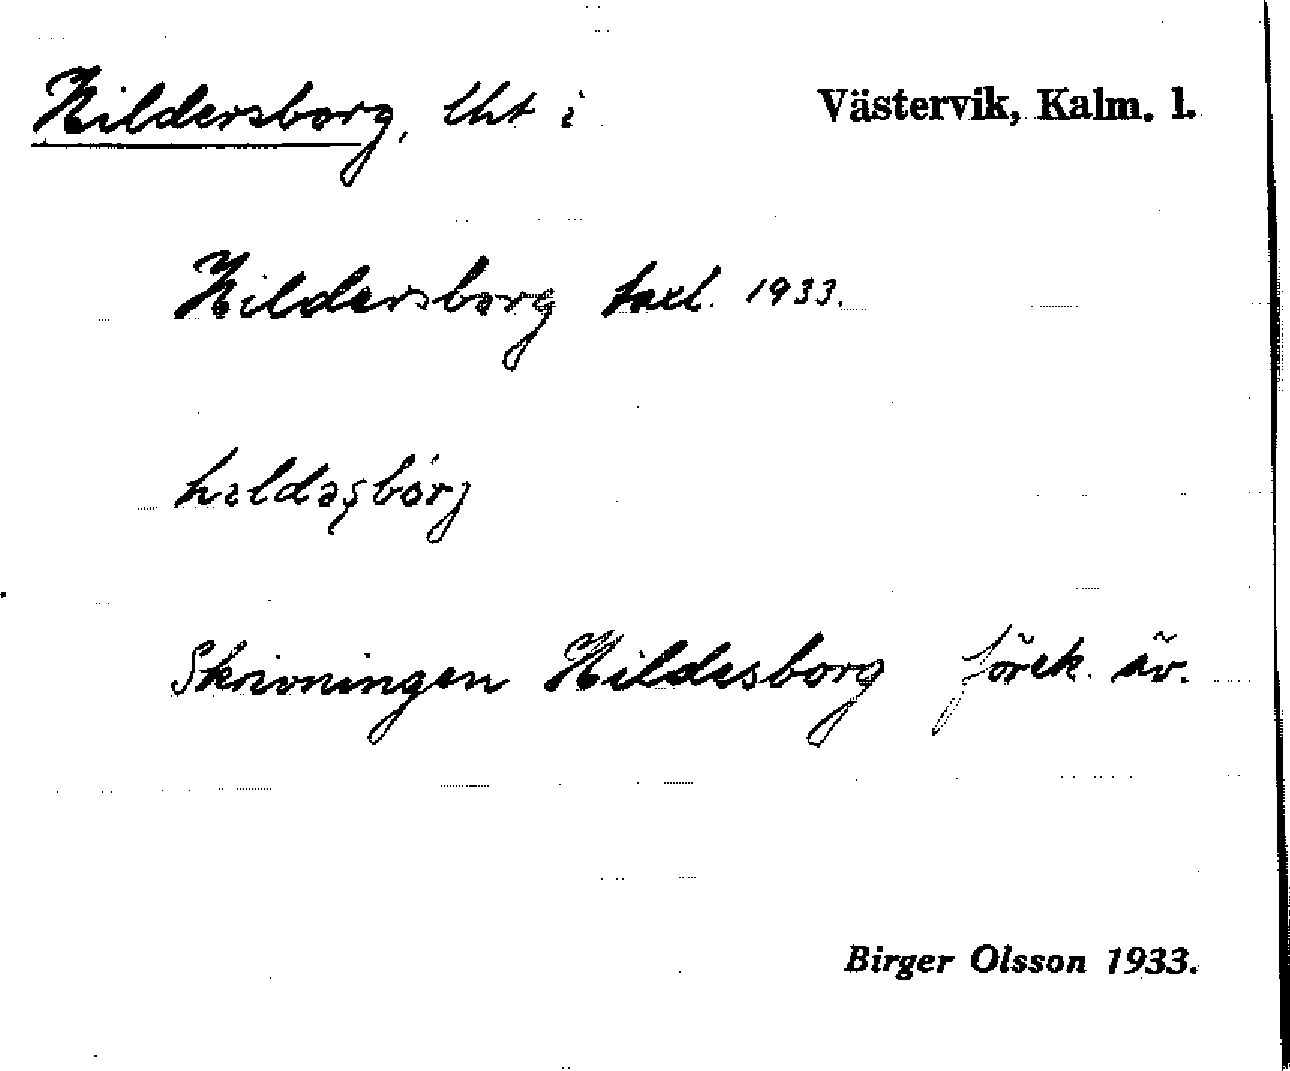 Hildersborg, lht i Västervik, Kalm. l.
Hildersborg taxl. 1933.
Skrivningen Hildesborg förek. äv.
Birger Olsson 1933.